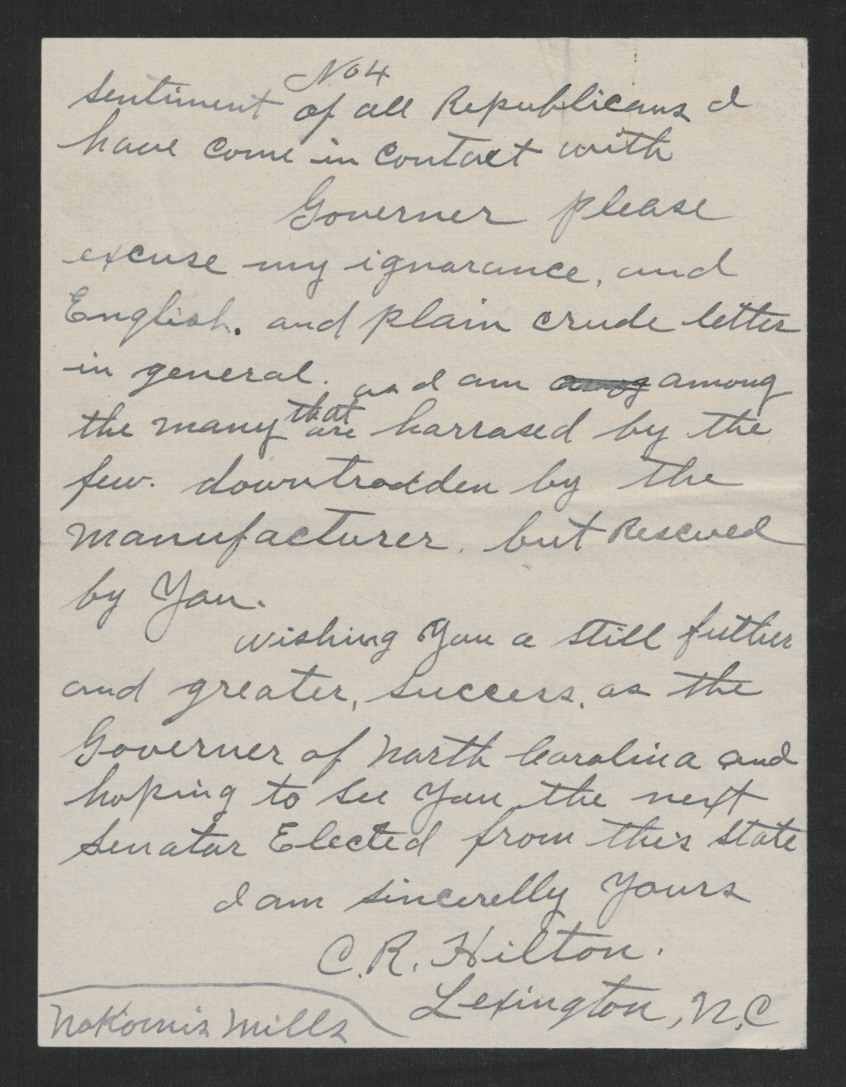 No 4
sentiment of all Republicans I
have come in contact with
Governer please
excuse my ignarance, and
English. and plain crude letter
in general. as I am among among
the many that are harrased by the
few. downtrodden by the
manufacturer. but Rescued
by You.
wishing You a still futher
and greater, success, as the
Governer of North Carolina and
hoping to see You the next
Senator Elected from this state
I am sincerelly Yours
C. R. Hilton.
Lexington, N, C
Nokomis Mills